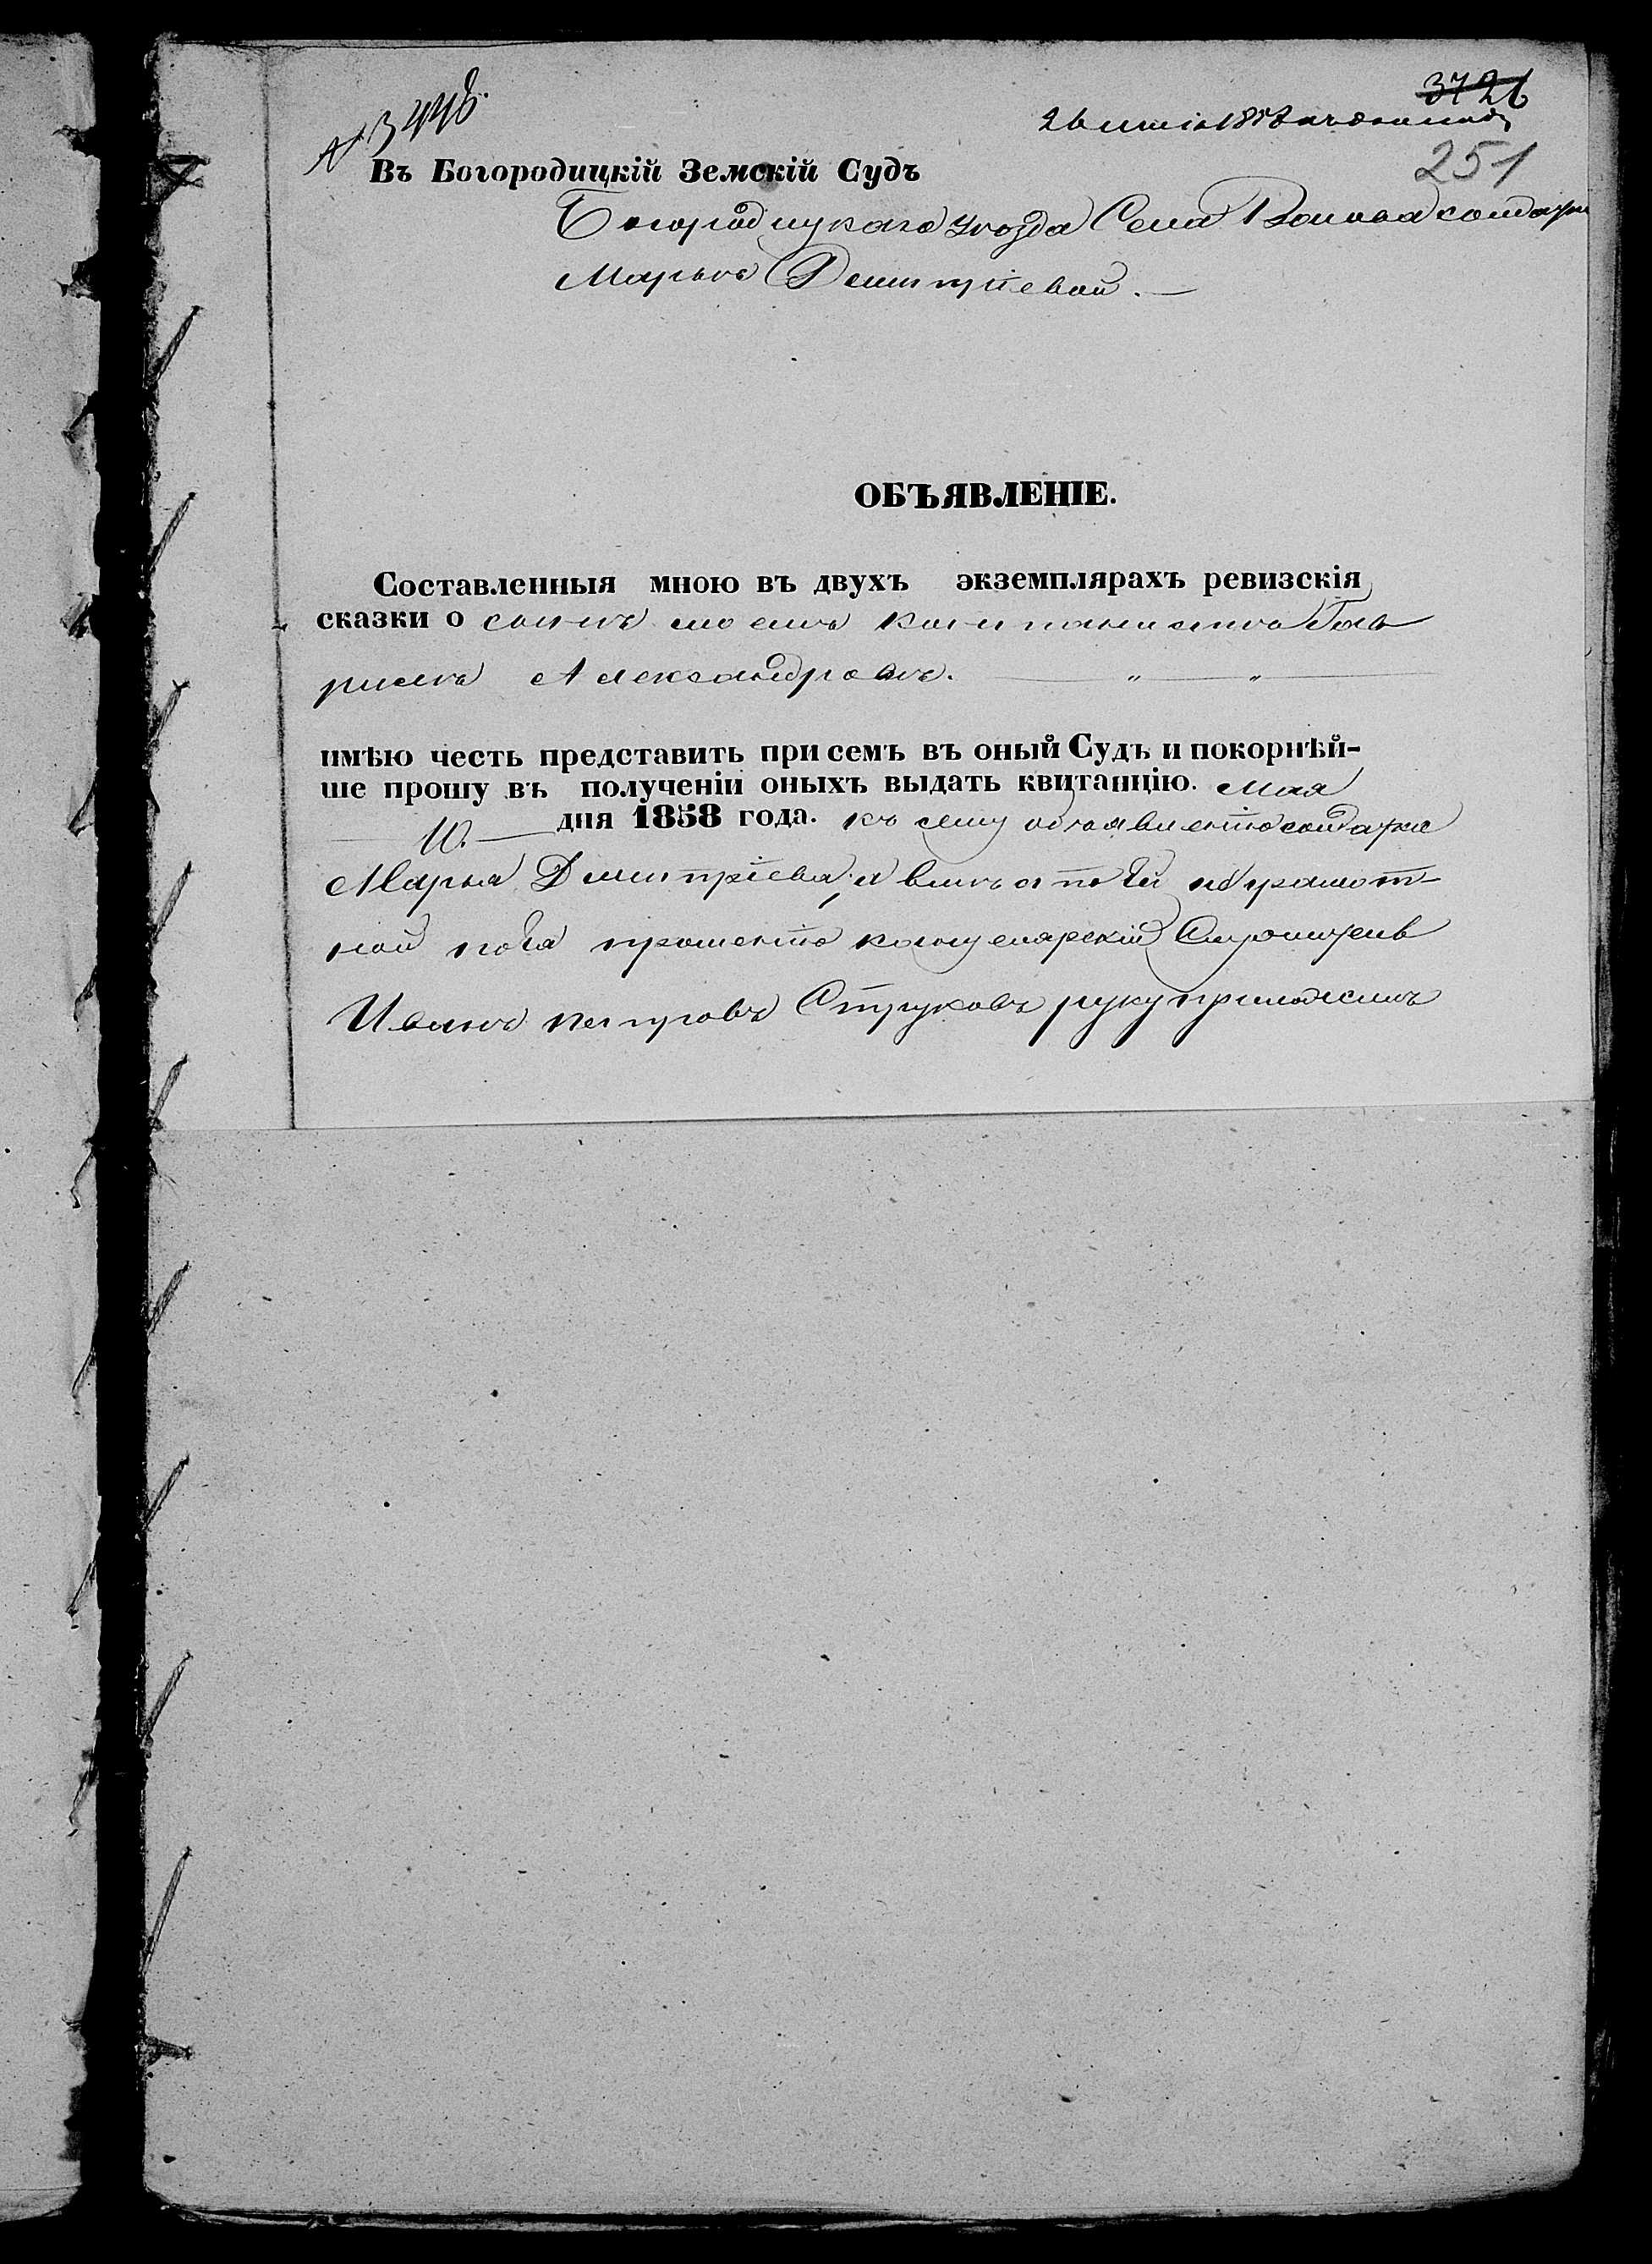 № 3448.
3726
26 Іюня 1858 къ дознанію
251
Въ Богородицкій Земскій Судъ
Богородицкаго уѣзда Села солдатки
Марьи Дмитріевой. —
ОБЪЯВЛЕНІЕ.
Составленныя мною въ двухъ экземплярахъ ревизскія
сказки о сынѣ моемъ кантонистѣ Гав
рилѣ Александровѣ. — „ — „ —
имѣю честь представить при семъ въ оный Судъ и покорнѣй-
ше прошу въ полученіи оныхъ выдать квитанцію. Мая
— 10. — дня 1858 года. къ сему объявленію солдатка
Марья Дмитріева, а вмѣсто ней неграмот-
ной по ея прошенію канцелярскій Служитель
Иванъ Петровъ Струковъ руку приложилъ